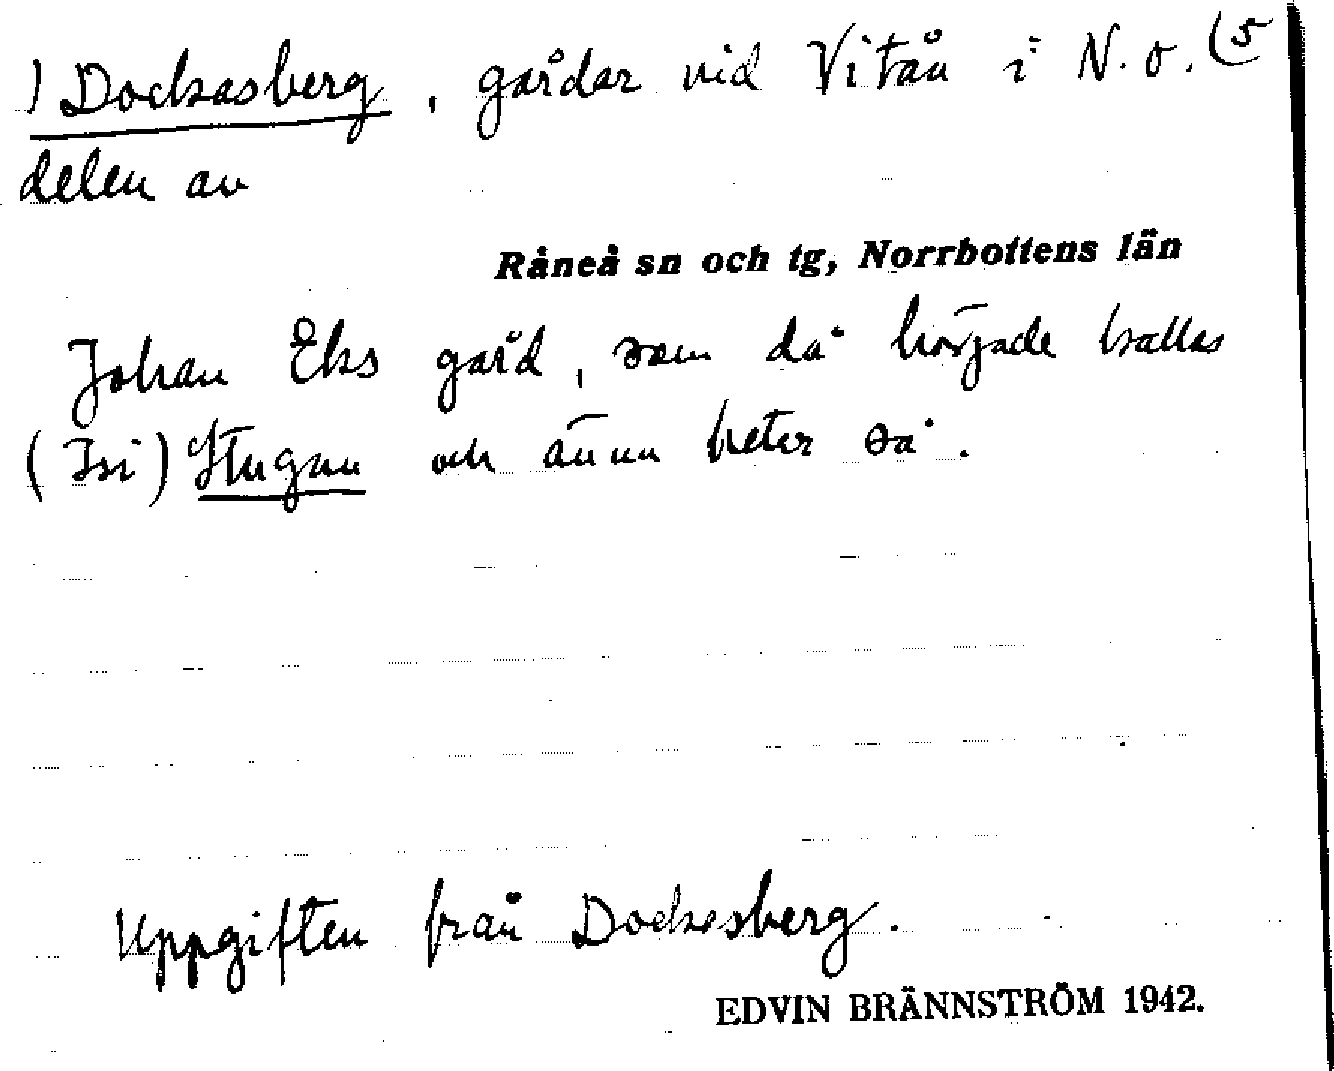 ) Dockasberg, gårdar vid Vitån i N.o. (5
delen av
Råneå sn och tg, Norrbottens län
Johan Eks gård, som då började kallas
( Isi) Stugan och ännu heter så.
Uppgiften från Dockasberg.
EDVIN BRÄNNSTRÖM 1942.